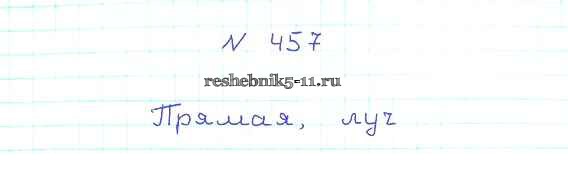 N 457
reshebnik5-11.ru
Прямая, луч